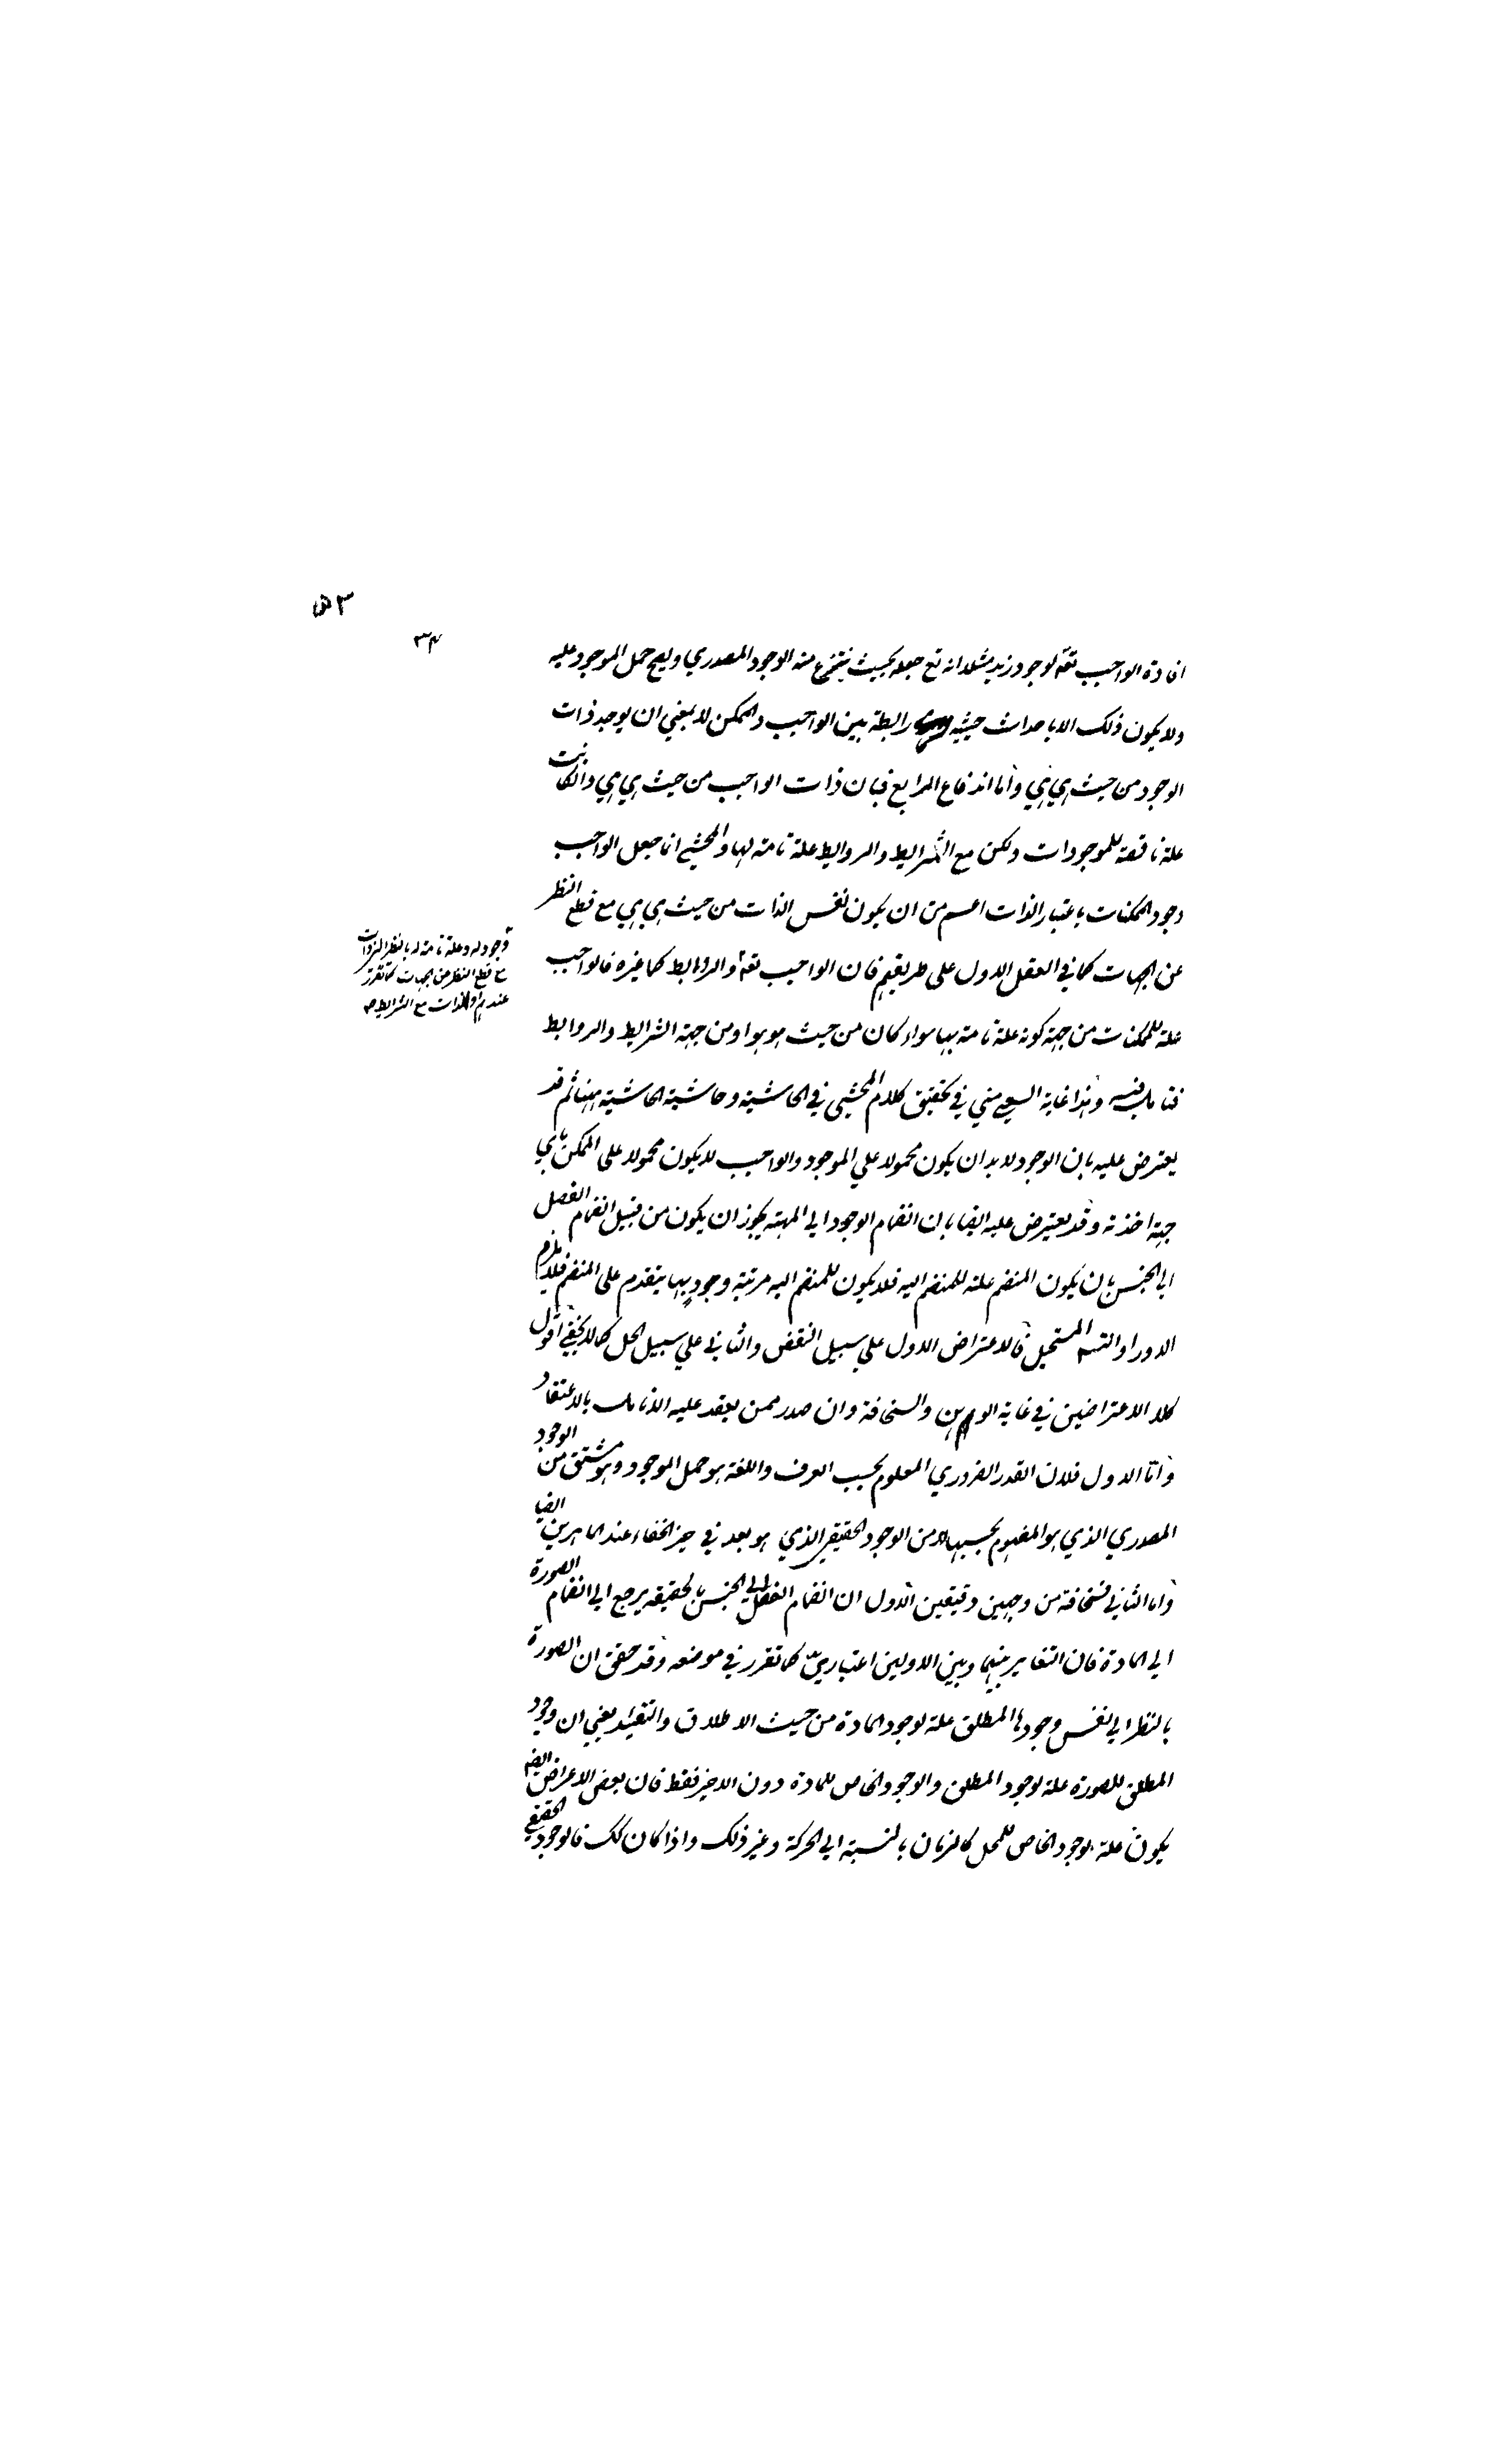 ٣٤
افادة الواجب تعم لوجود زيد مثلا انه تع جعله بحيث ينتزع منه الوجود المصدري ويصح حمل الموجود عليه
ولا يكون ذلك الا باحداث حيثية رابطة بين الواجب والممكن لا بمعني ان يوجد ذات
الوجود من حيث هي هي واما اندفاع الرابع فبان ذات الواجب من حيث هي هي وان كانت
علة ناقصة للموجودات ولكن مع الشرايط والروابط علة تامة لها والمحشي انما جعل الواجب
وجود الممكنات باعتبار الذات اعم من ان يكون نفس الذات من حيث هي هي مع قطع النظر
عن الجهات كما في العقل الاول على طريقهم فان الواجب تعم والروابط كما غيره فالواجب
وجود له وعلة تامة له بالنظر الى الذات
مع قطع النظر عن الجهات كما تقرر
عندهم او الذات مع الشرايط
علة للممكنات من جهة كونه علة تامة بها سواء كان من حيث هو هو او من جهة الشرايط والروابط
فتامل فيه وهذا غاية السعي مني في تحقيق كلام المحشي في الحاشية وحاشية الحاشية ههنا ثم قد
يعترض عليه بان الوجود لا بد ان يكون محمولا علي الموجود والواجب لا يكون محمولا على الممكن باي
جهة اخذته وقد يعترض عليه ايضا بان انضمام الوجود الي المهية يجوز ان يكون من قبيل انضمام الفصل
الي الجنس بان يكون المنضم علة للمنضم اليه فلا يكون للمنضم اليه مرتبة وجود بها يتقدم على المنضم فلا يلزم
الدور او التسم المستحيل فالاعتراض الاول علي سبيل النقض والثاني علي سبيل الحل كما لا يخفي اقول
كلا الاعتراضين في غاية الوهن والسخافة وان صدر ممن يعقد عليه الانامل بالاعتقاد
واما الاول فلان القدر الضروري المعلوم بحسب العرف واللغة هو حمل الموجود وهو مشتق من الوجود
المصدري الذي هو المفهوم بحسبها من الوجود الحقيقي الذي هو بعد في حيز الخفاء عند الماهرين ايضا
واما الثاني فسخافته من وجهين دقيقين الاول ان انضمام الفصل الي الجنس بالحقيقة يرجع الي انضمام الصورة
الي المادة فان التغاير بينهما وبين الاولين اعتباري كما تقرر في موضعه وقد حقق ان الصورة
بالنظر الي نفس وجودها المطلق علة لوجود المادة من حيث الاطلاق والتقييد يعني ان وجود
المطلق للصورة علة لوجود المطلق والوجود الخاص للمادة دون الاخير فقط فان بعض الاعراض ايضا
يكون علة لوجود الخاص للمحل كالزمان بالنسبة الي الحركة وغير ذلك واذا كان كك فالوجود الحقيقي